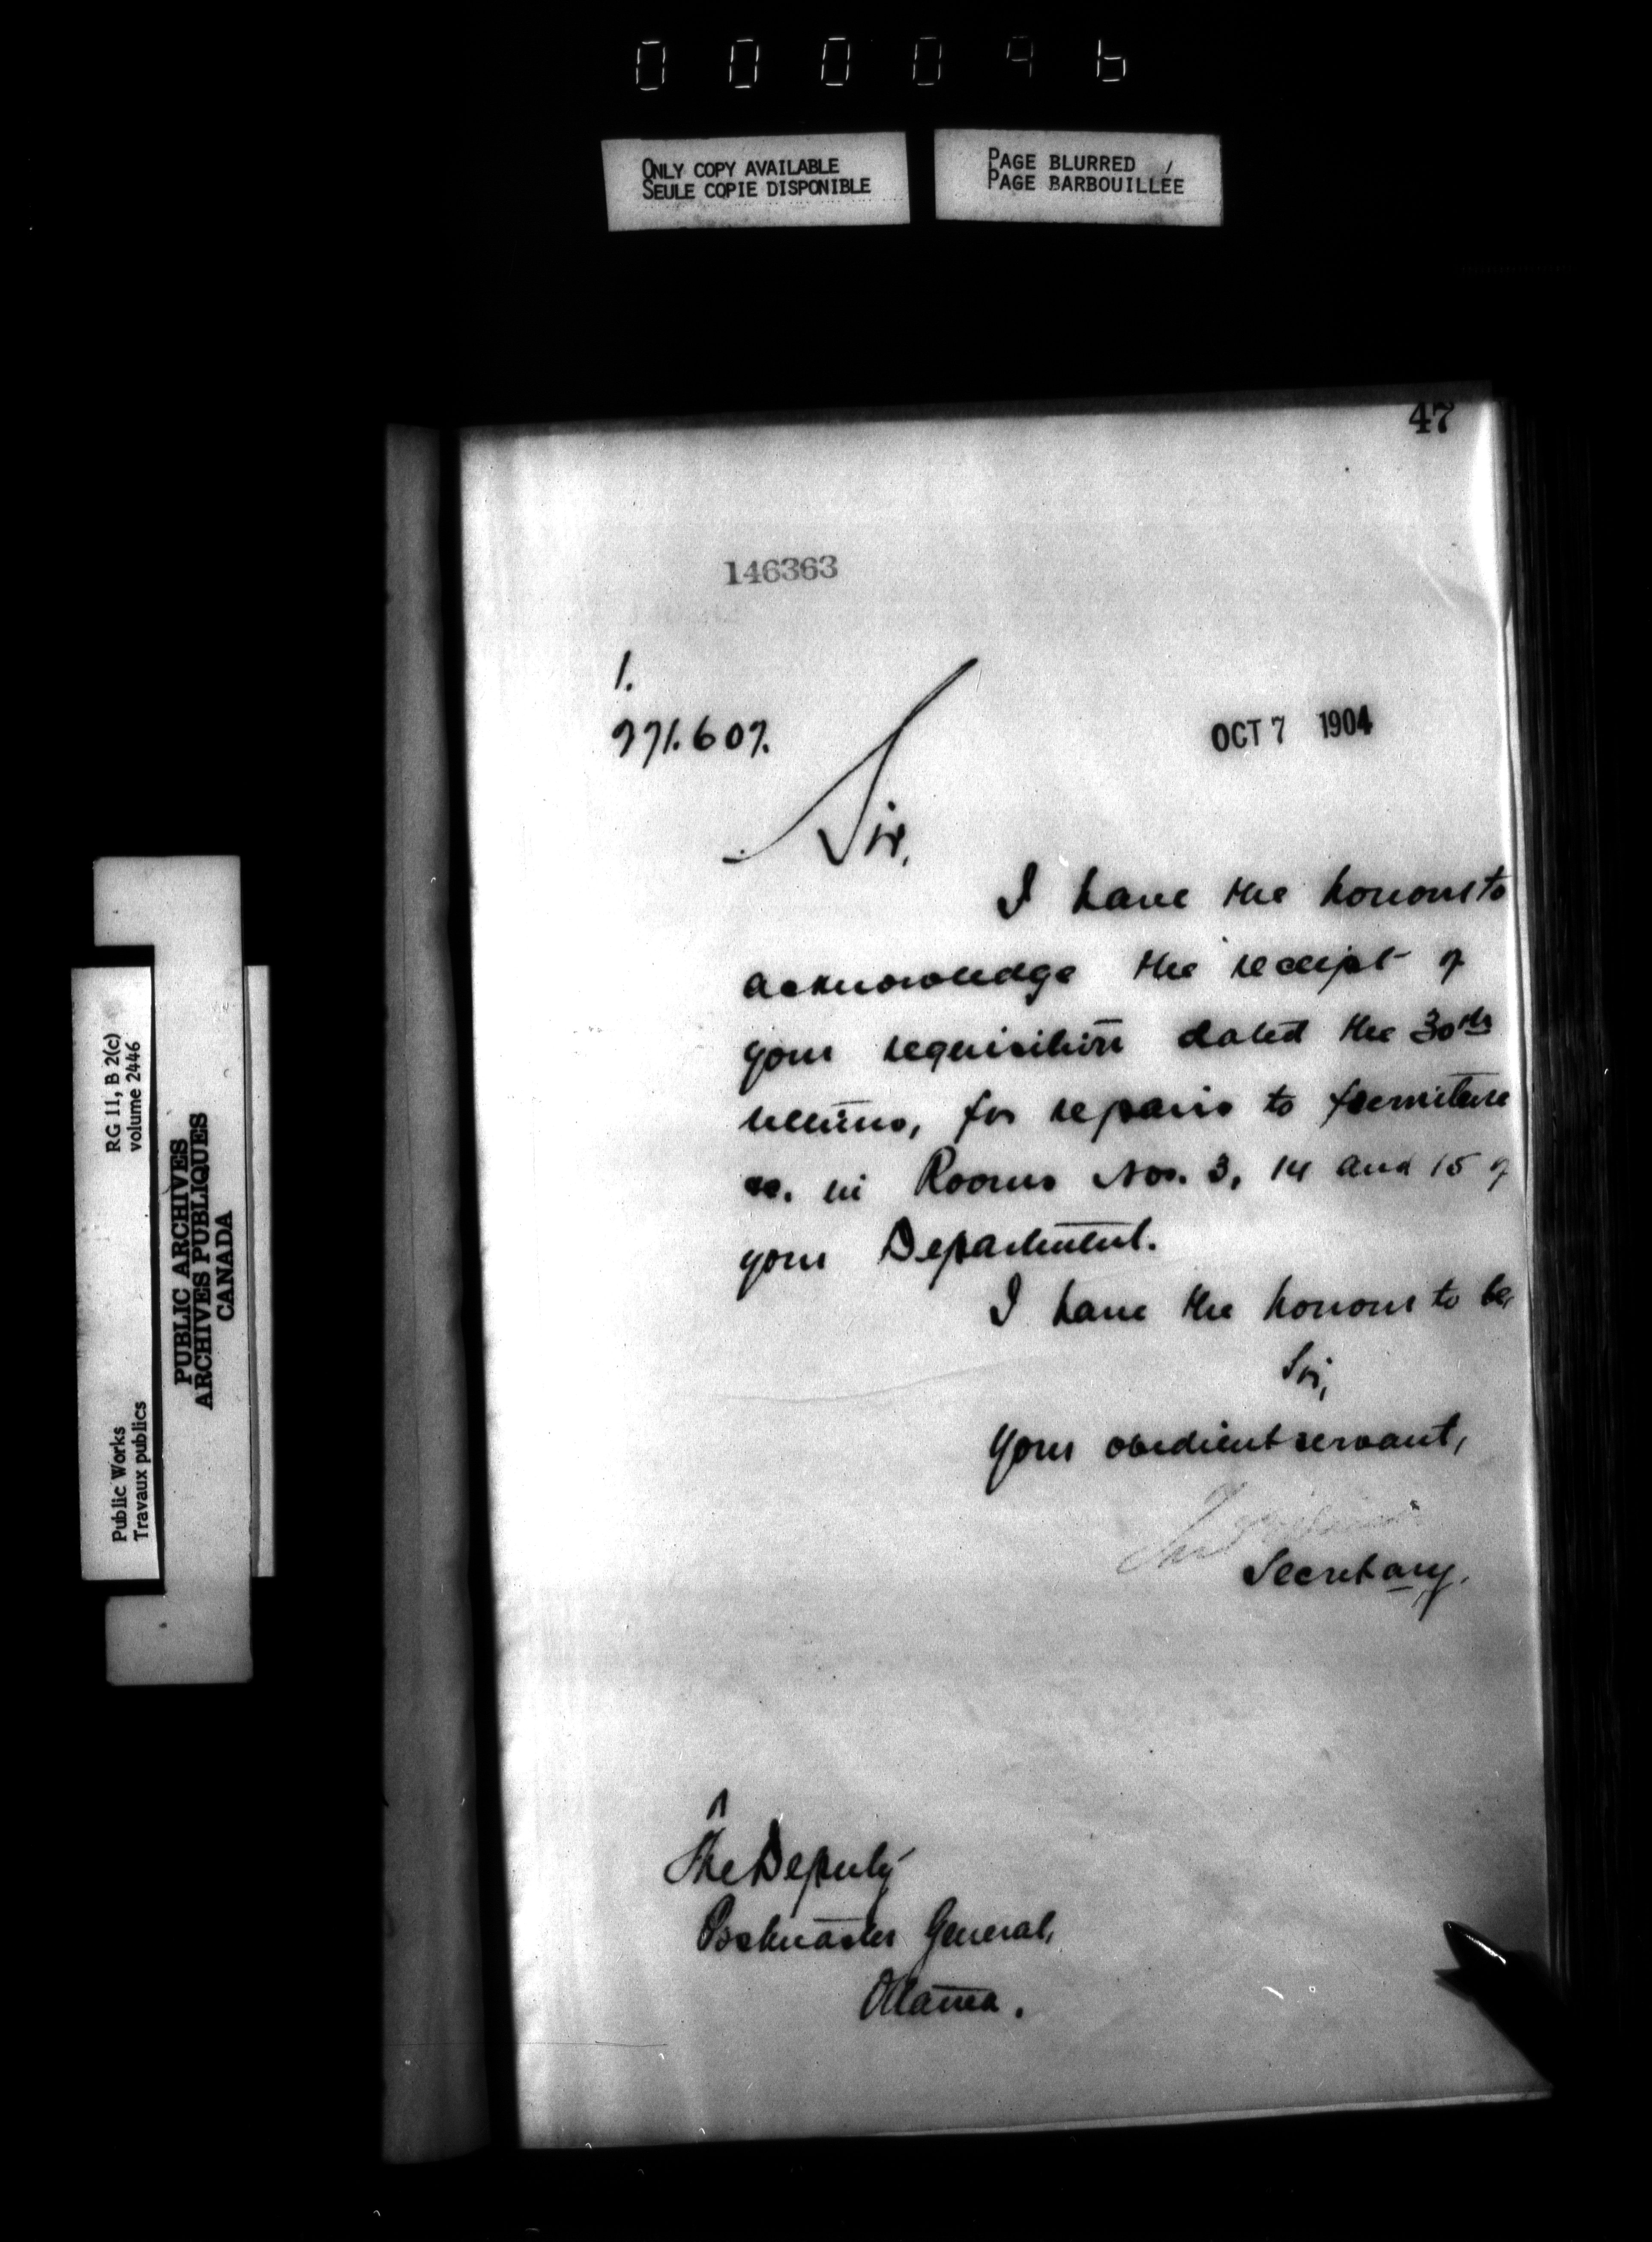 000046
ONLY COPY AVAILABLE
SEULE COPIE DISPONIBLE
PAGE BLURRED
PAGE BARBOUILLÉE
47
146363
1.
OCT 7 1904
Sir,
I have the honour to
acknowledge the receipt of
your requisition dated the 30th
ultimo, for repairs to furniture
&c. in Rooms Nos. 3, 14 and 15 of
your Department.
I have the honour to be,
Sir,
Your obedient servant,
Secretary.
The Deputy
Postmaster General,
Ottawa.
RG 11, B 2(c)
volume 2446
Public Works
Travaux publics
PUBLIC ARCHIVES
ARCHIVES PUBLIQUES
CANADA